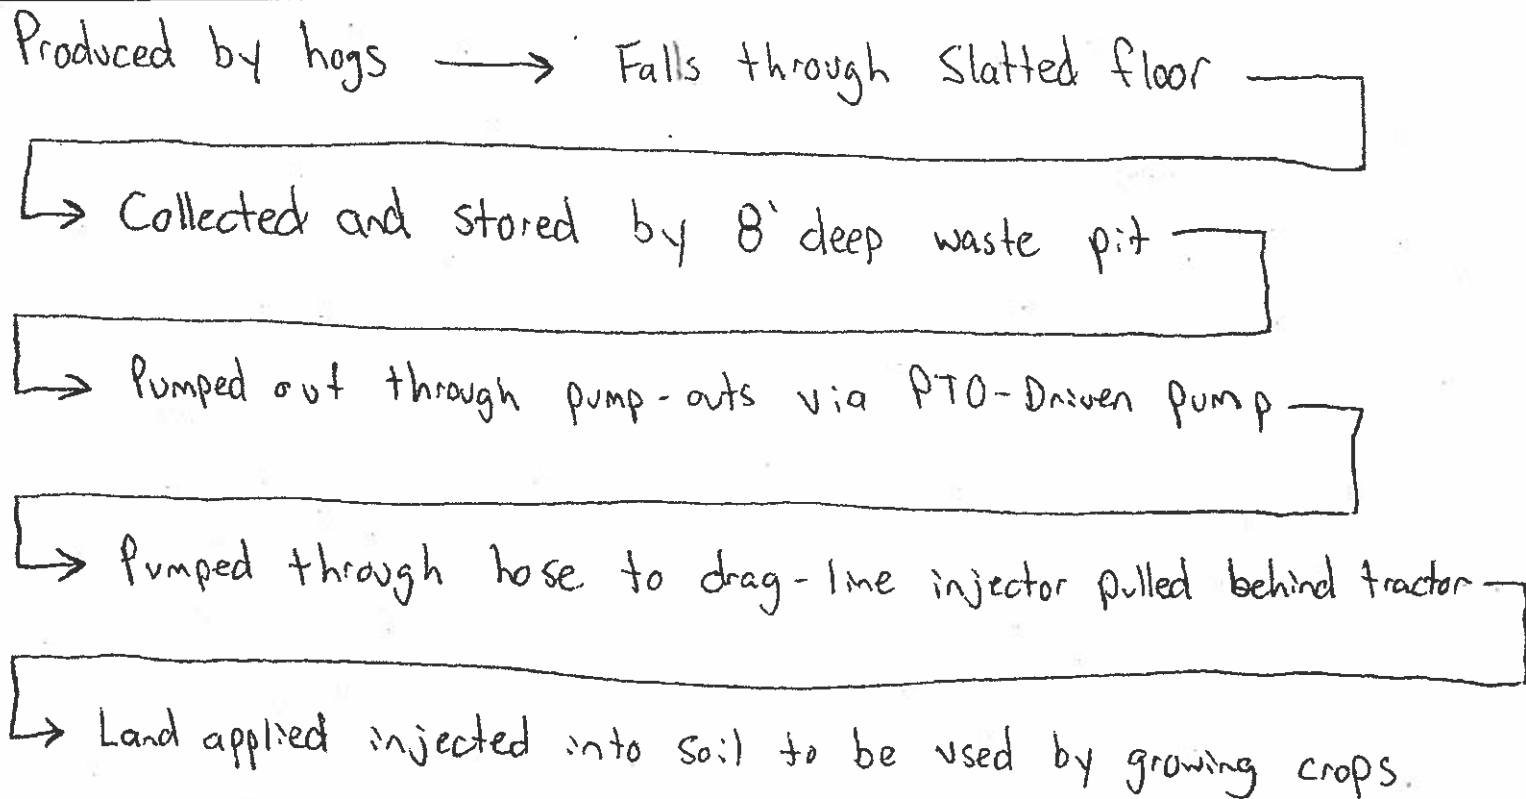 Produced by hogs → Falls through Slatted floor
→ Collected and stored by 8' deep waste pit
→ Pumped out through pump-outs via PTO-Driven pump
→ Pumped through hose to drag-line injector pulled behind tractor
→ Land applied injected into soil to be used by growing crops.